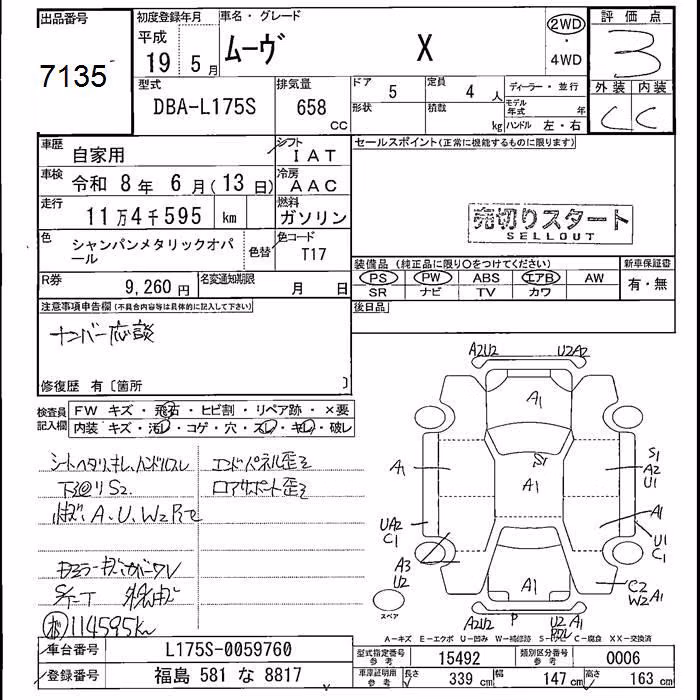 出品番号
7135
初度登録年月
平成
19 年 5 月
車名・グレード
ムーヴ X
2WD
・
4WD
評価点
3
外装 内装
C C
型式
DBA-L175S
排気量
658
CC
ドア 5
定員 4 人
形状
積載 kg
ディーラー・並行
モデル年式 年
ハンドル 左・右
車歴 自家用
シフト IAT
車検 令和 8 年 6 月 ( 13 日)
冷房 AAC
走行 11 万 4 千 595 km
燃料 ガソリン
色 シャンパンメタリックオパール
色替
色コード T17
R券 9,260 円
名変通知期限 月 日
セールスポイント(正常に機能するものに限ります)
売切りスタート
SELLOUT
装備品 (純正品に限り○をつけてください)
PS PW ABS エアB AW
SR ナビ TV カワ
新車保証書
有・無
後日品
注意事項申告欄(不具合内容等は具体的に記入して下さい)
ナンバー応談
修復歴 有〔箇所 〕
検査員記入欄
FW キズ・飛石・ヒビ割・リペア跡・×要
内装 キズ・汚レ・コゲ・穴・スレ・キレ・破レ
シートヘタリ、キレ、ハンドルスレ
下回りS2
A、U、W2
エンドパネル歪ミ
ロアサポート歪ミ
114595km
A2U2 U2A2
A1
S1
A1
A1
A1
S1
A2
U1
A1
UA2
C1
U1
C1
A3
U2
C2
W2A1
A2U2 P U2 A1
スペア
A-キズ E-エクボ U-凹み W-補修跡 S-サビ C-腐食 XX-交換済
車台番号 L175S-0059760
登録番号 福島 581 な 8817
型式指定番号 参考 15492
類別区分番号 参考 0006
車庫証明用 参考 長さ 339 cm 幅 147 cm 高さ 163 cm